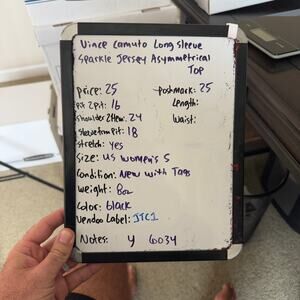 Vince Camuto Long Sleeve
Sparkle Jersey Asymmetrical
Top
Price: 25
Poshmark: 25
Pit 2 Pit: 16
Length:
Shoulder 2 Hem: 24
Waist:
Sleeve from Pit: 18
Stretch: yes
Size: US Women's S
Condition: New with Tags
Weight: 8oz
Color: black
Vendoo Label: JTC1
Notes: Y 6034